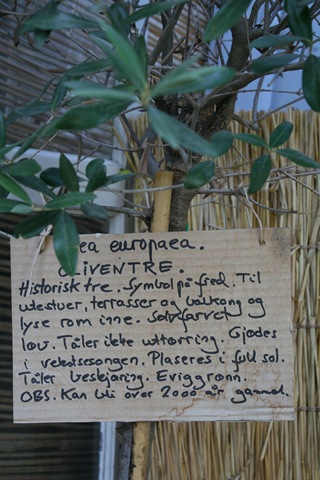 ea europaea.
OLIVENTRE.
Historisk tre. Symbol på fred. Til
utestuer, terrasser og balkong og
lyse rom inne. Sølvfarvet
løv. Tåler ikke uttørring. Gjødes
i vekstsesongen. Plaseres i full sol.
Tåler beskjæring. Eviggrønn.
OBS. Kan bli over 2000 år gammel.